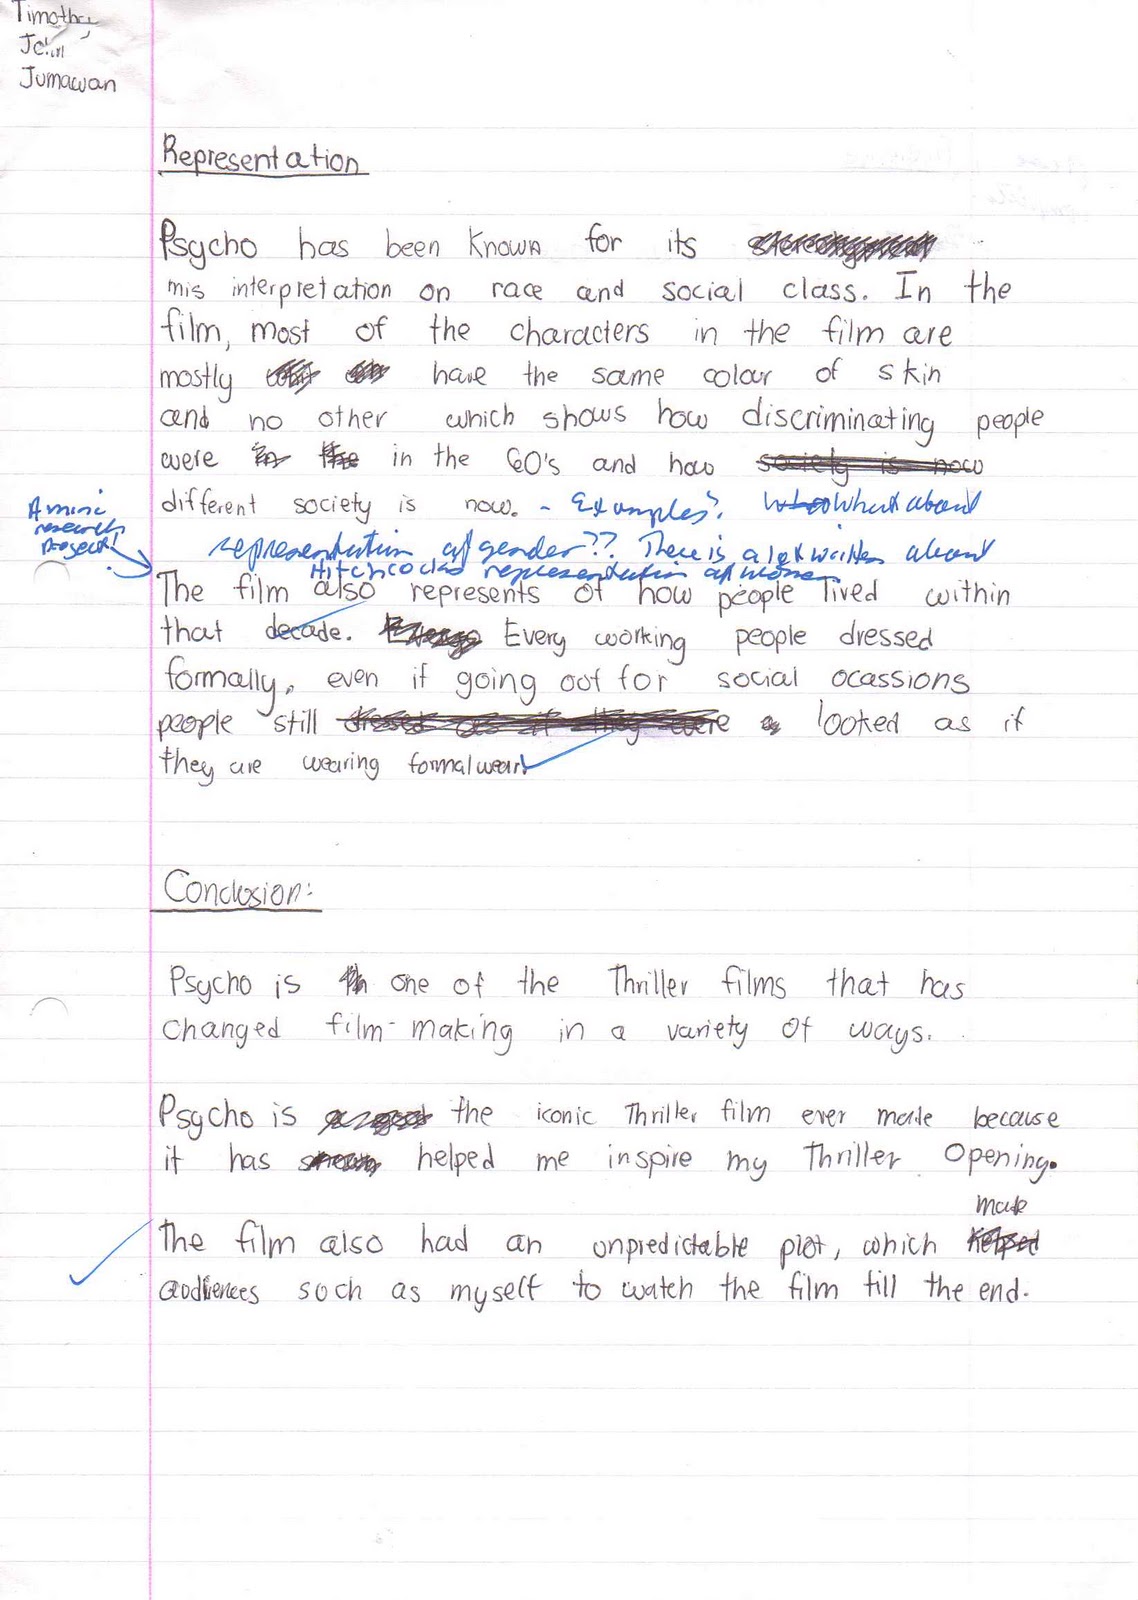 Timothy
John
Jumawan
Representation
Psycho has been known for its
mis interpretation on race and social class. In the
film, most of the characters in the film are
mostly have the same colour of skin
and no other which shows how discriminating people
were in the 60's and how society is now
different society is now. - Examples? What about
representation of gender?? There is a lot written about
Hitchcock's representation of women
A mini
research
project!
The film also represents of how people lived within
that decade. Every working people dressed
formally, even if going out for social ocassions
people still dressed as if they were looked as if
they are wearing formal wear.
Conclusion:
Psycho is one of the Thriller films that has
changed film-making in a variety of ways.
Psycho is the iconic Thriller film ever made because
it has helped me inspire my Thriller Opening.
made
The film also had an unpredictable plot, which helped
audiences such as myself to watch the film till the end.